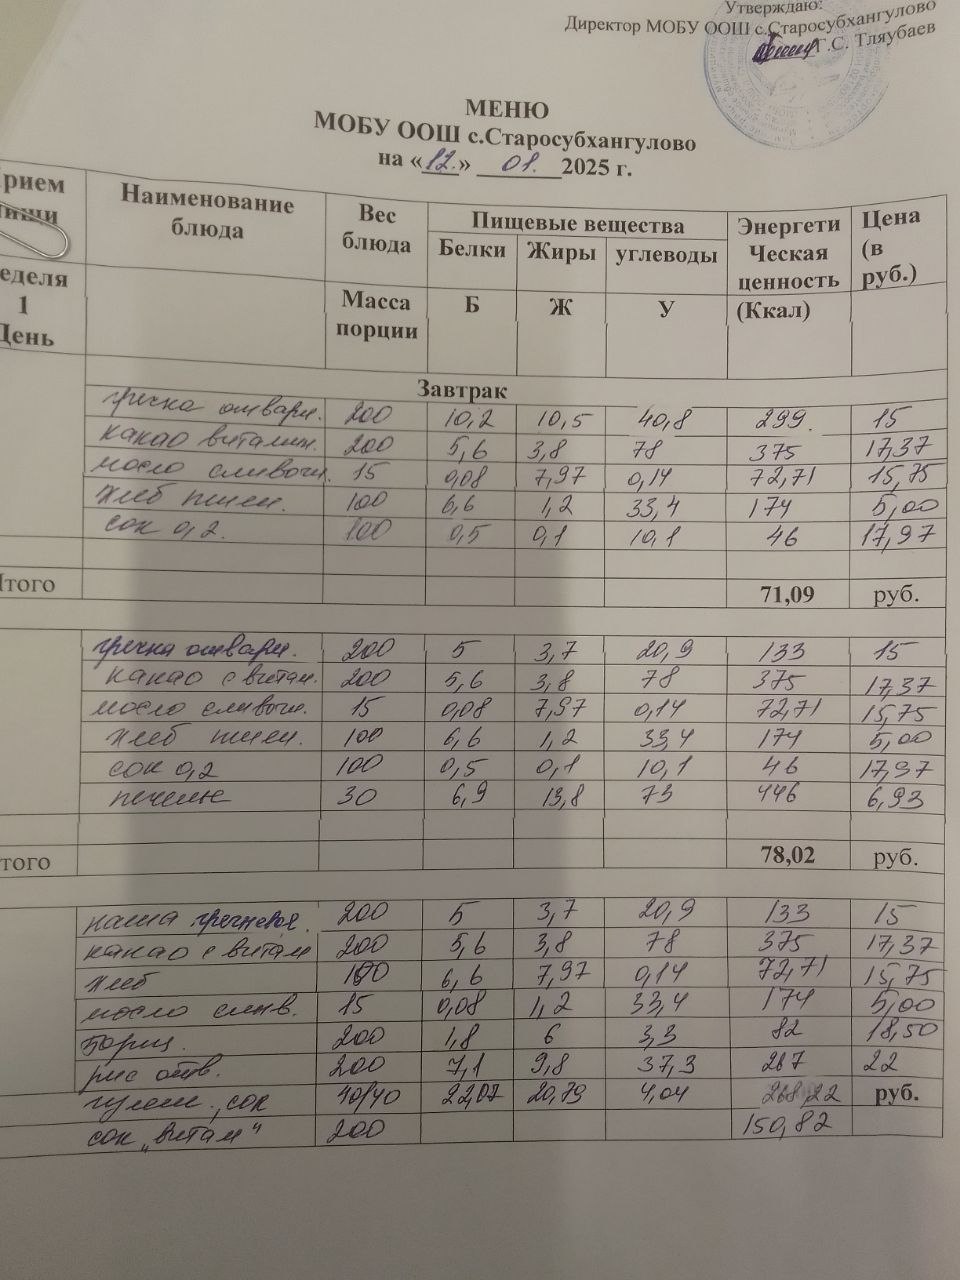 Утверждаю:
Директор МОБУ ООШ с.Старосубхангулово
Г.С. Тляубаев
МЕНЮ
МОБУ ООШ с.Старосубхангулово
на «12.» 01. 2025 г.
рием пищи Наименование блюда Вес блюда Пищевые вещества Энергети Ческая ценность Цена (в руб.)
Белки Жиры углеводы
еделя 1 День Масса порции Б Ж У (Ккал)
Завтрак
гречка отварн. 200 10,2 10,5 40,8 299 15
какао витамин. 200 5,6 3,8 78 375 17,37
масло сливочн. 15 0,08 7,97 0,14 72,71 15,75
хлеб пшен. 100 6,6 1,2 33,4 174 5,00
сок 0,2. 100 0,5 0,1 10,1 46 17,97
Итого 71,09 руб.
гречка отварн. 200 5 3,7 20,9 133 15
какао с витам. 200 5,6 3,8 78 375 17,37
масло сливочн. 15 0,08 7,97 0,14 72,71 15,75
хлеб пшен. 100 6,6 1,2 33,4 174 5,00
сок 0,2 100 0,5 0,1 10,1 46 17,97
печенье 30 6,9 13,8 73 446 6,93
того 78,02 руб.
каша гречневая. 200 5 3,7 20,9 133 15
какао с витам 200 5,6 3,8 78 375 17,37
хлеб 100 6,6 7,97 0,14 72,71 15,75
масло слив. 15 0,08 1,2 33,4 174 5,00
борщ. 200 1,8 6 3,3 82 18,50
рис отв. 200 7,1 9,8 37,3 267 22
гуляш., сок 40/40 22,07 20,79 4,04 268,22 руб.
сок „витам“ 200 150,82